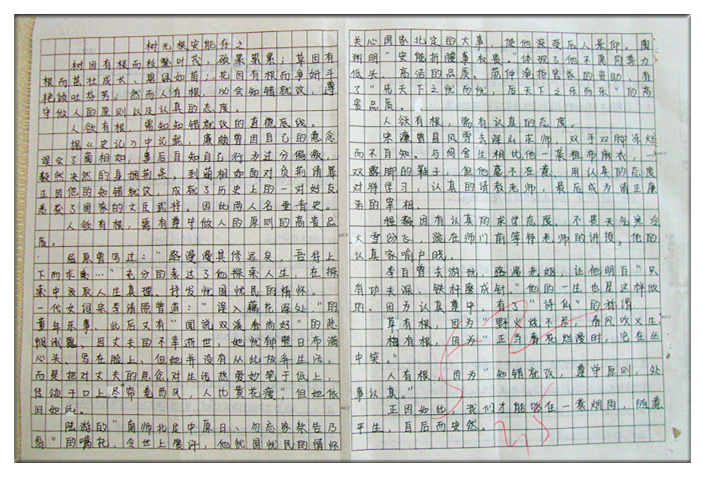 树无根安能存之
树因有根而枝繁叶茂，硕果累累；草因有
根而茁壮成长、翠绿如茵；花因有根而争妍斗
艳，吐芬芳；然而人有根，以会知错就改，遵
守做人的原则以及认真的态度。
人欲有根，需知知错就改的直傲底线。
据《史记》中记载，廉颇曾因自己的恶念
误会了蔺相如，事后自知自己行为过分偏激，
毅然决然的身捆荆条，到蔺相如面前负荆请罪
正因他的知错就改，成就了历史上的一对好友
患者了国家的文臣武将，因此两人名垂青史。
人欲有根，需有遵守做人的原则的高贵品
质。
屈原曾写过："路漫漫其修远矣，吾将上
下而求索…"充分的表达了他探索人生，在探
索中汲取人生真理，抒发忧国忧民的情怀。
一代女词宋李清照曾道："深入藕花深处"的
童年乐事，此后又有"闻说双溪春尚好"的悲
惆闲愁，因丈夫的不幸逝世，她忧郁整日布满
心头，写在脸上，但她并没有从此放弃生活，
而是把对丈夫的思念对生活热爱妙笔于纸上，
传颂于口上，尽常卷西风，人比黄花瘦"但她依
旧如此。
陆游的"王师北定中原日，勿忘家祭告乃
翁"的嘱托，令世上赞许，他忧国忧民的情怀
关心国家北定的大事，使他深受后人景仰，陶
渊明"安能折腰事权贵"体现了他不向恶势力
低头，高洁的品质。范仲淹拒官家的资助，有
了"先天下之忧而忧，后天下之乐而乐"的高
贵品质。
人欲有根，需有认真的态度。
宋濂曾身风雪去深山求师，双手双脚冻烂
而不自知。与同舍生相比他一袭粗布麻衣，一
双露脚的鞋子，但他毫不在意，用认真的态度
对待学习，认真的请教老师，最后成为清正廉
洁的宰相。
程颢因有认真的求学态度，不畏天气寒冷
大雪纷飞，跪在师门前等待老师的讲授，他的
认真家喻户晓。
李白曾去游玩，路遇老妪，让他明白"只
有功夫深，铁杵磨成针"他的一生也是这样做
的。因为认真遵守，有了"诗仙"的称谓
草有根，因为"野火烧不尽，春风吹又生"
梅有根，因为"正当春花烂漫时，它在丛
中笑。"
人有根，因为"知错就改，遵守原则，处
事认真。"
正因如此，我们才能够在一蓑烟雨，随意
平生，百后而安然。